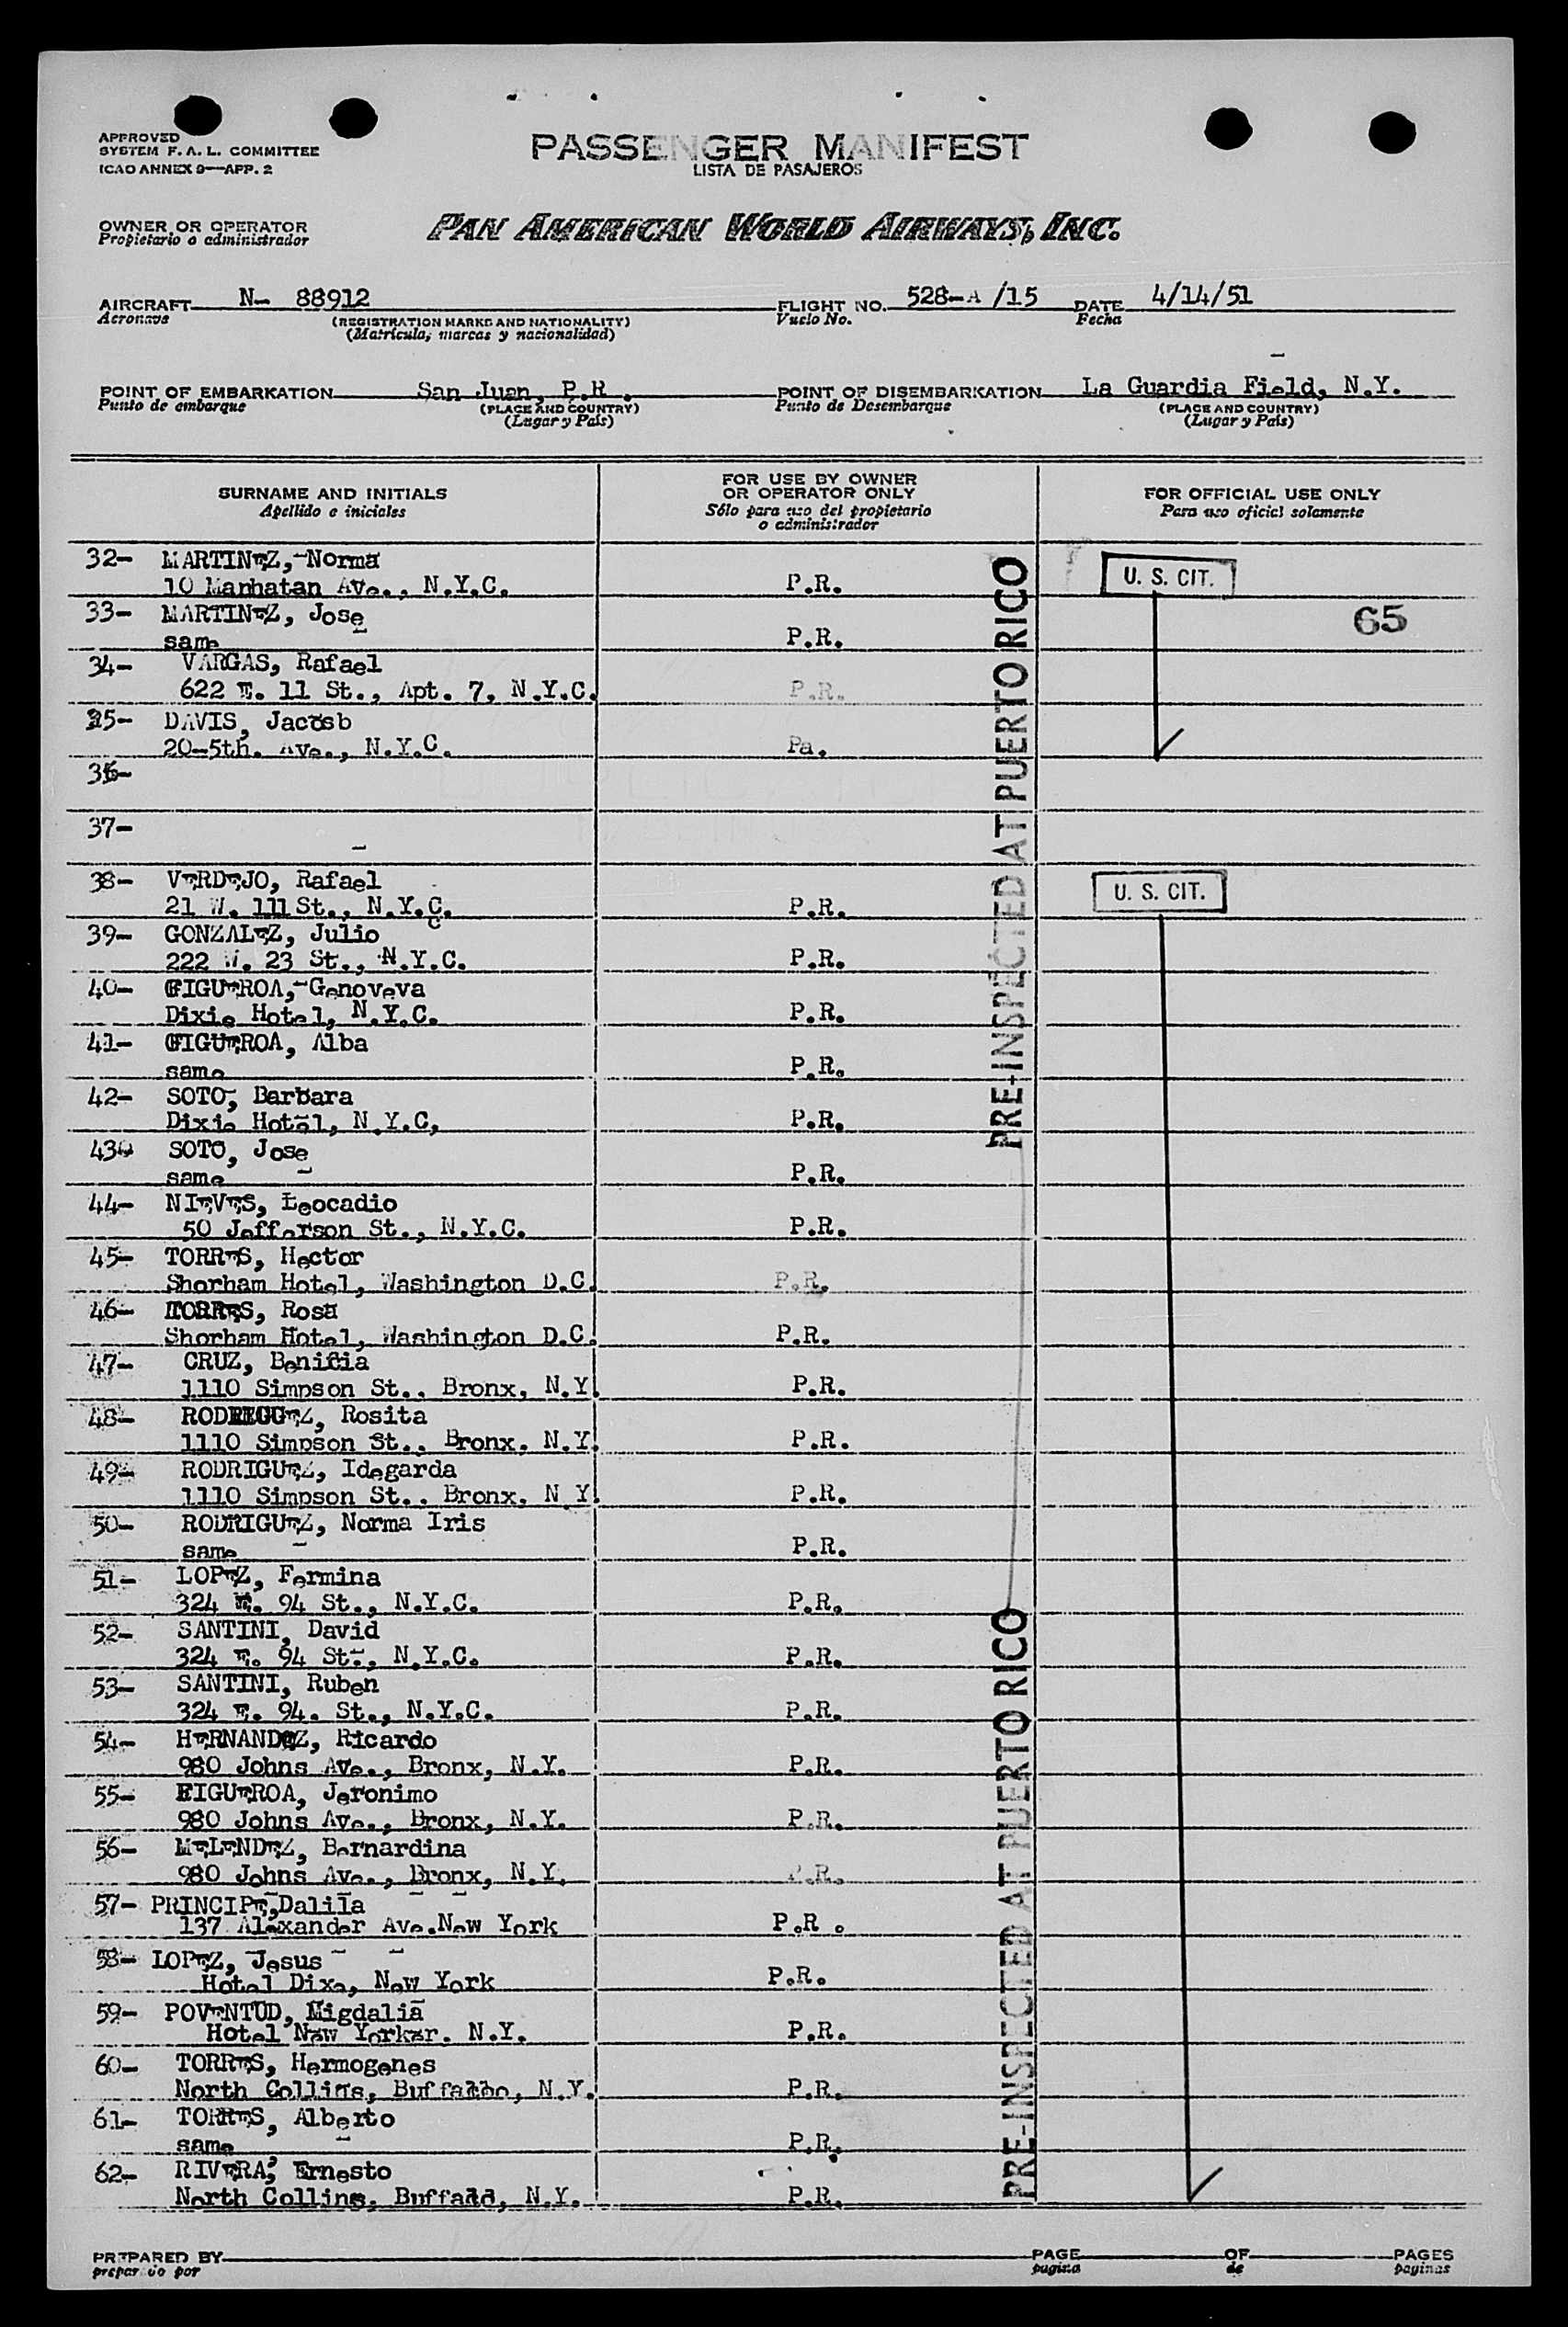 APPROVED
SYSTEM F. A. L. COMMITTEE
ICAO ANNEX 9—APP. 2
PASSENGER MANIFEST
LISTA DE PASAJEROS
OWNER OR OPERATOR
Propietario o administrador
PAN AMERICAN WORLD AIRWAYS, INC.
AIRCRAFT N- 88912 FLIGHT NO. 528-A /15 DATE 4/14/51
Aeronave (REGISTRATION MARKS AND NATIONALITY) Vuelo No. Fecha
(Matrícula, marcas y nacionalidad)
POINT OF EMBARKATION San Juan, P.R. POINT OF DISEMBARKATION La Guardia Field, N.Y.
Punto de embarque (PLACE AND COUNTRY) Punto de Desembarque (PLACE AND COUNTRY)
(Lugar y País) (Lugar y País)
SURNAME AND INITIALS
Apellido e iniciales
FOR USE BY OWNER
OR OPERATOR ONLY
Sólo para uso del propietario
o administrador
FOR OFFICIAL USE ONLY
Para uso oficial solamente
32- MARTINEZ, Norma
10 Manhatan Ave., N.Y.C. P.R. U. S. CIT.
33- MARTINEZ, Jose 65
same P.R.
34- VARGAS, Rafael
622 E. 11 St., Apt. 7, N.Y.C. P.R.
35- DAVIS, Jacob
20-5th. Ave., N.Y.C. Pa.
36-
37-
38- VERDEJO, Rafael U. S. CIT.
21 W. 111 St., N.Y.C. P.R.
39- GONZALEZ, Julio
222 W. 23 St., N.Y.C. P.R.
40- FIGUEROA, Genoveva
Dixie Hotel, N.Y.C. P.R.
41- FIGUEROA, Alba
same P.R.
42- SOTO, Barbara
Dixie Hotel, N.Y.C, P.R.
43- SOTO, Jose
same P.R.
44- NIEVES, Leocadio
50 Jefferson St., N.Y.C. P.R.
45- TORRES, Hector
Shorham Hotel, Washington D.C. P.R.
46- TORRES, Rosa
Shorham Hotel, Washington D.C. P.R.
47- CRUZ, Benicia
1110 Simpson St., Bronx, N.Y. P.R.
48- RODRIGUEZ, Rosita
1110 Simpson St., Bronx, N.Y. P.R.
49- RODRIGUEZ, Idegarda
1110 Simpson St., Bronx, N Y. P.R.
50- RODRIGUEZ, Norma Iris
same P.R.
51- LOPEZ, Fermina
324 E. 94 St., N.Y.C. P.R.
52- SANTINI, David
324 E. 94 St., N.Y.C. P.R.
53- SANTINI, Ruben
324 E. 94. St., N.Y.C. P.R.
54- HERNANDEZ, Ricardo
980 Johns Ave., Bronx, N.Y. P.R.
55- FIGUEROA, Jeronimo
980 Johns Ave., Bronx, N.Y. P.R.
56- MELENDEZ, Bernardina
980 Johns Ave., Bronx, N.Y. P.R.
57- PRINCIPE, Dalila
137 Alexander Ave.New York P.R.
58- LOPEZ, Jesus
Hotel Dixe, New York P.R.
59- POVENTUD, Migdalia
Hotel New Yorker. N.Y. P.R.
60- TORRES, Hermogenes
North Collins, Buffalo, N.Y. P.R.
61- TORRES, Alberto
same P.R.
62- RIVERA, Ernesto
North Collins, Buffalo, N.Y. P.R.
PRE-INSPECTED AT PUERTO RICO
PRE-INSPECTED AT PUERTO RICO
PREPARED BY PAGE OF PAGES
preparado por pagina de paginas